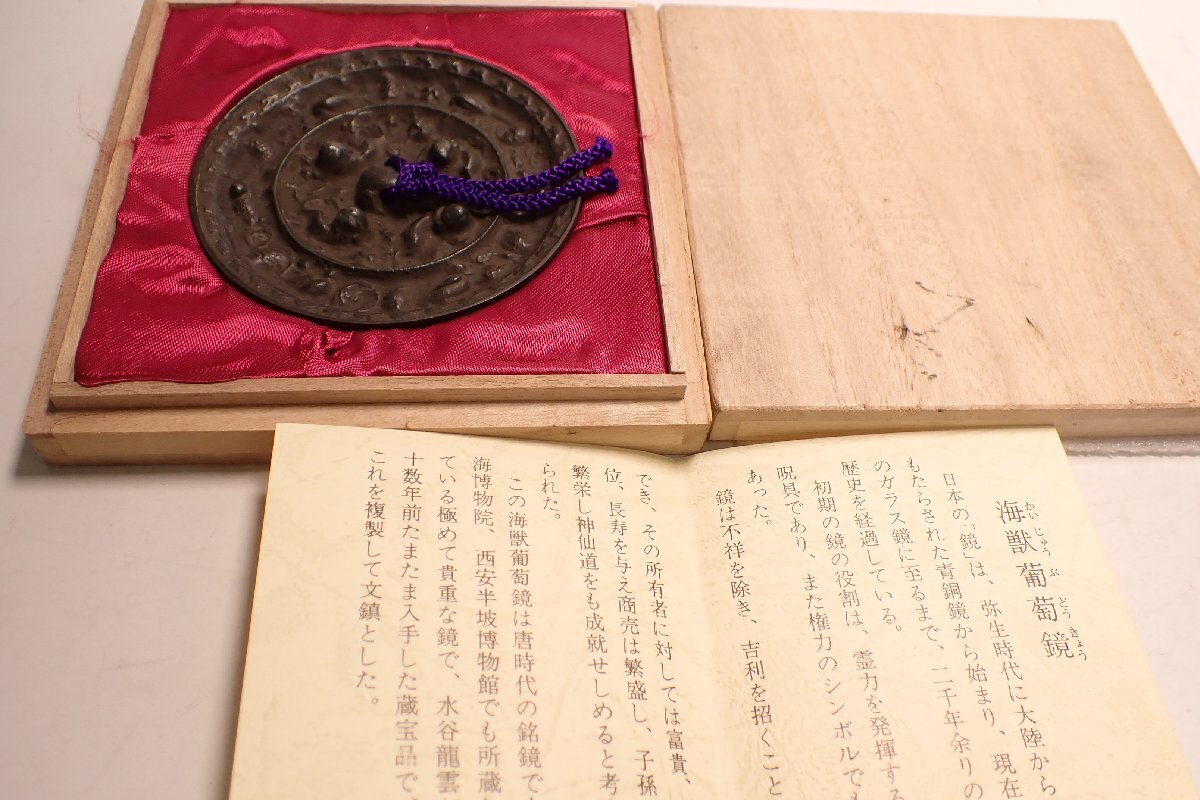 海獣葡萄鏡
かいじゅうぶどうきょう
日本の「鏡」は、弥生時代に大陸から
もたらされた青銅鏡から始まり、現在
のガラス鏡に至るまで、二千年余りの
歴史を経過している。
初期の鏡の役割は、霊力を発揮する
呪具であり、また権力のシンボルでも
あった。
鏡は不祥を除き、吉利を招くこと
でき、その所有者に対しては富貴、
位、長寿を与え商売は繁盛し、子孫
繁栄し神仙道をも成就せしめると考
られた。
この海獣葡萄鏡は唐時代の銘鏡で
海博物院、西安半坡博物館でも所蔵
ている極めて貴重な鏡で、水谷龍雲
十数年前たまたま入手した蔵宝品で、
これを複製して文鎮とした。